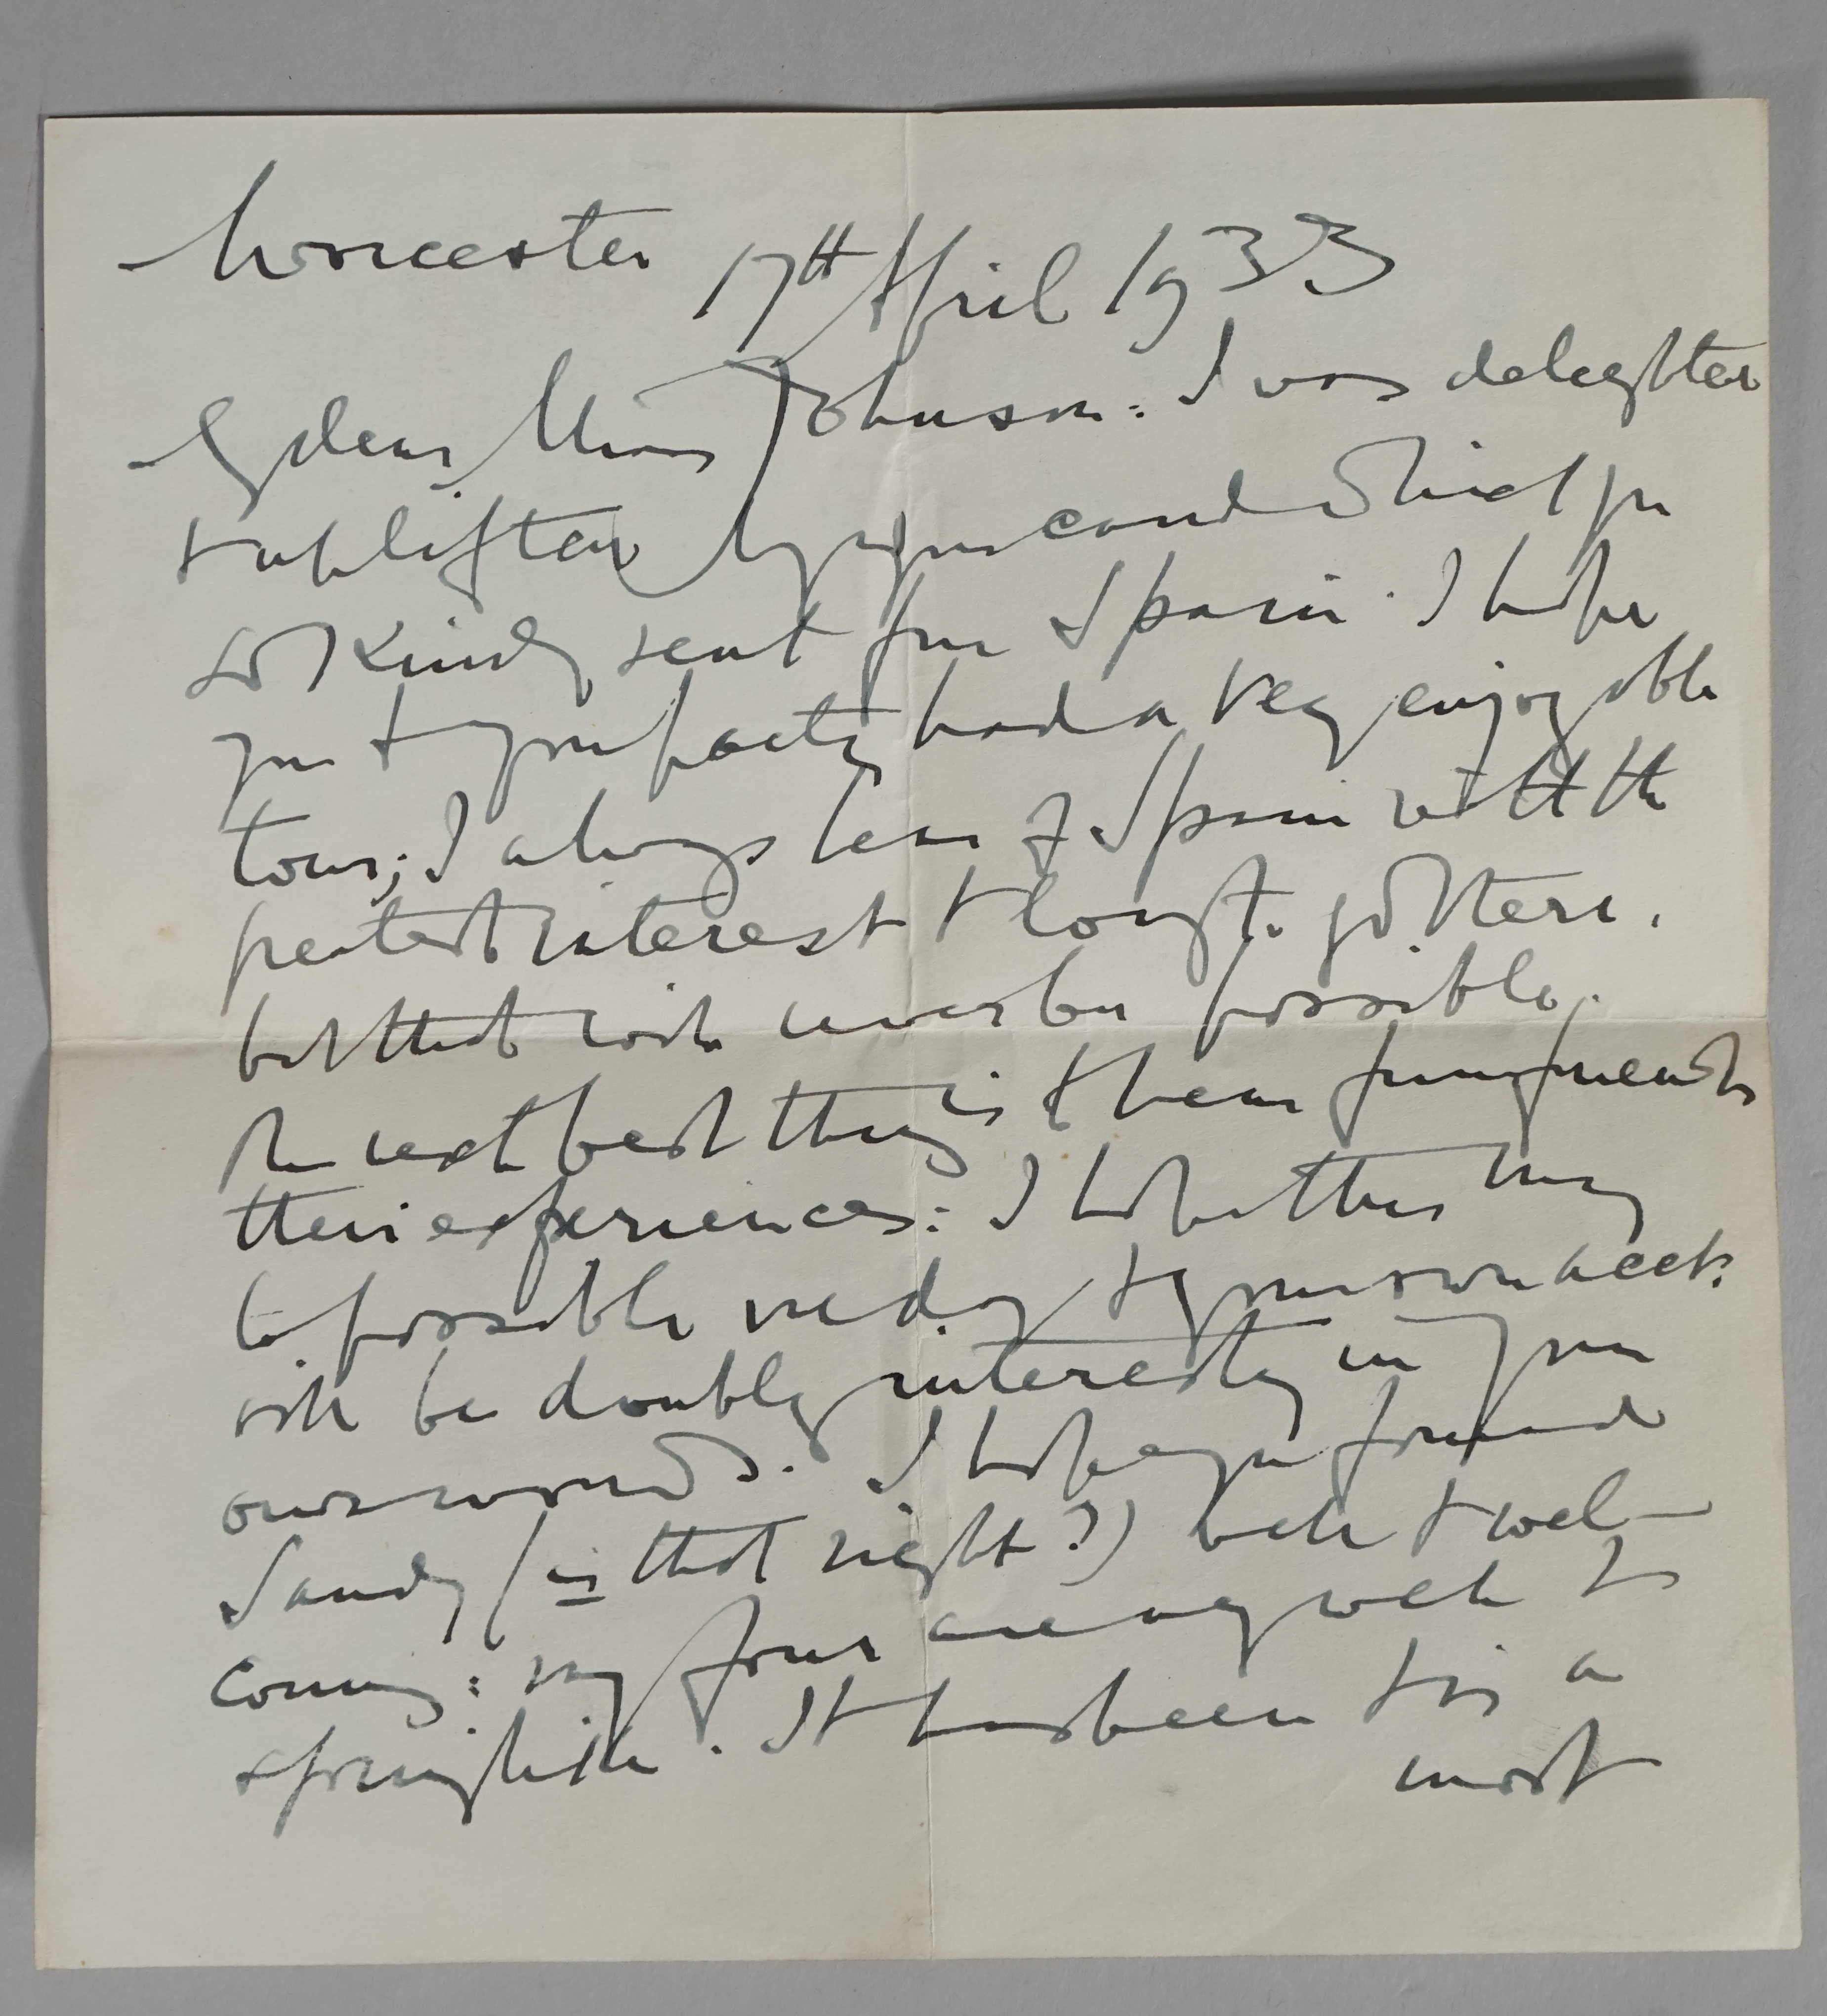 Worcester 17th April 1933
My dear Miss Johnson: I was delighted
& uplifted by your card which you
so kindly sent from Spain. I hope
you & your party had a very enjoyable
tour; I always hear of Spain with the
greatest interest & long to go there,
but that will never be possible.
The next best thing is to hear from my friends
their experiences: I hope this may
be possible one day & your own acct:
will be doubly interesting in your
own words. I hope you found
Sandy (is that right?) well & wel-
coming: my four are very well &
spring like. It has been & is a
most